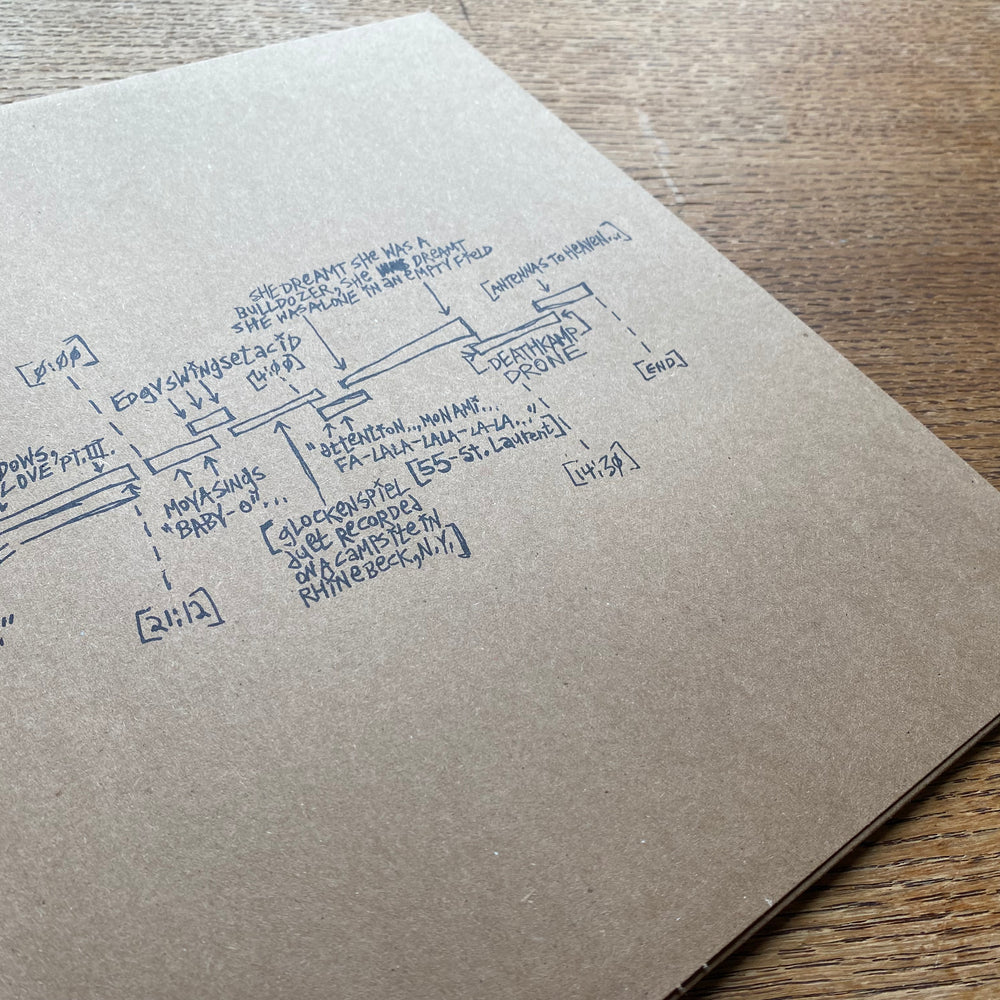 SHE DREAMT SHE WAS A
BULLDOZER, SHE DREAMT
SHE WAS ALONE IN an EMPTY FIELD
[ANTENNAS TO HEAVEN...]
[0:00]
EDgYSWingsetaciD
[4:00]
[DEATHKAMP
DRONE]
[END]
LOVE" pt.III.
MOYA SINGS
"BABY-O"...
"attention...MON AMI...
FA-LALA-LALA-LA-LA..."
[55-St. Laurent]
[14:30]
[gLOCKENSPIEL
duet RECORDed
ON A CAMPSite IN
RHINEBECK, N.Y.]
[21:12]